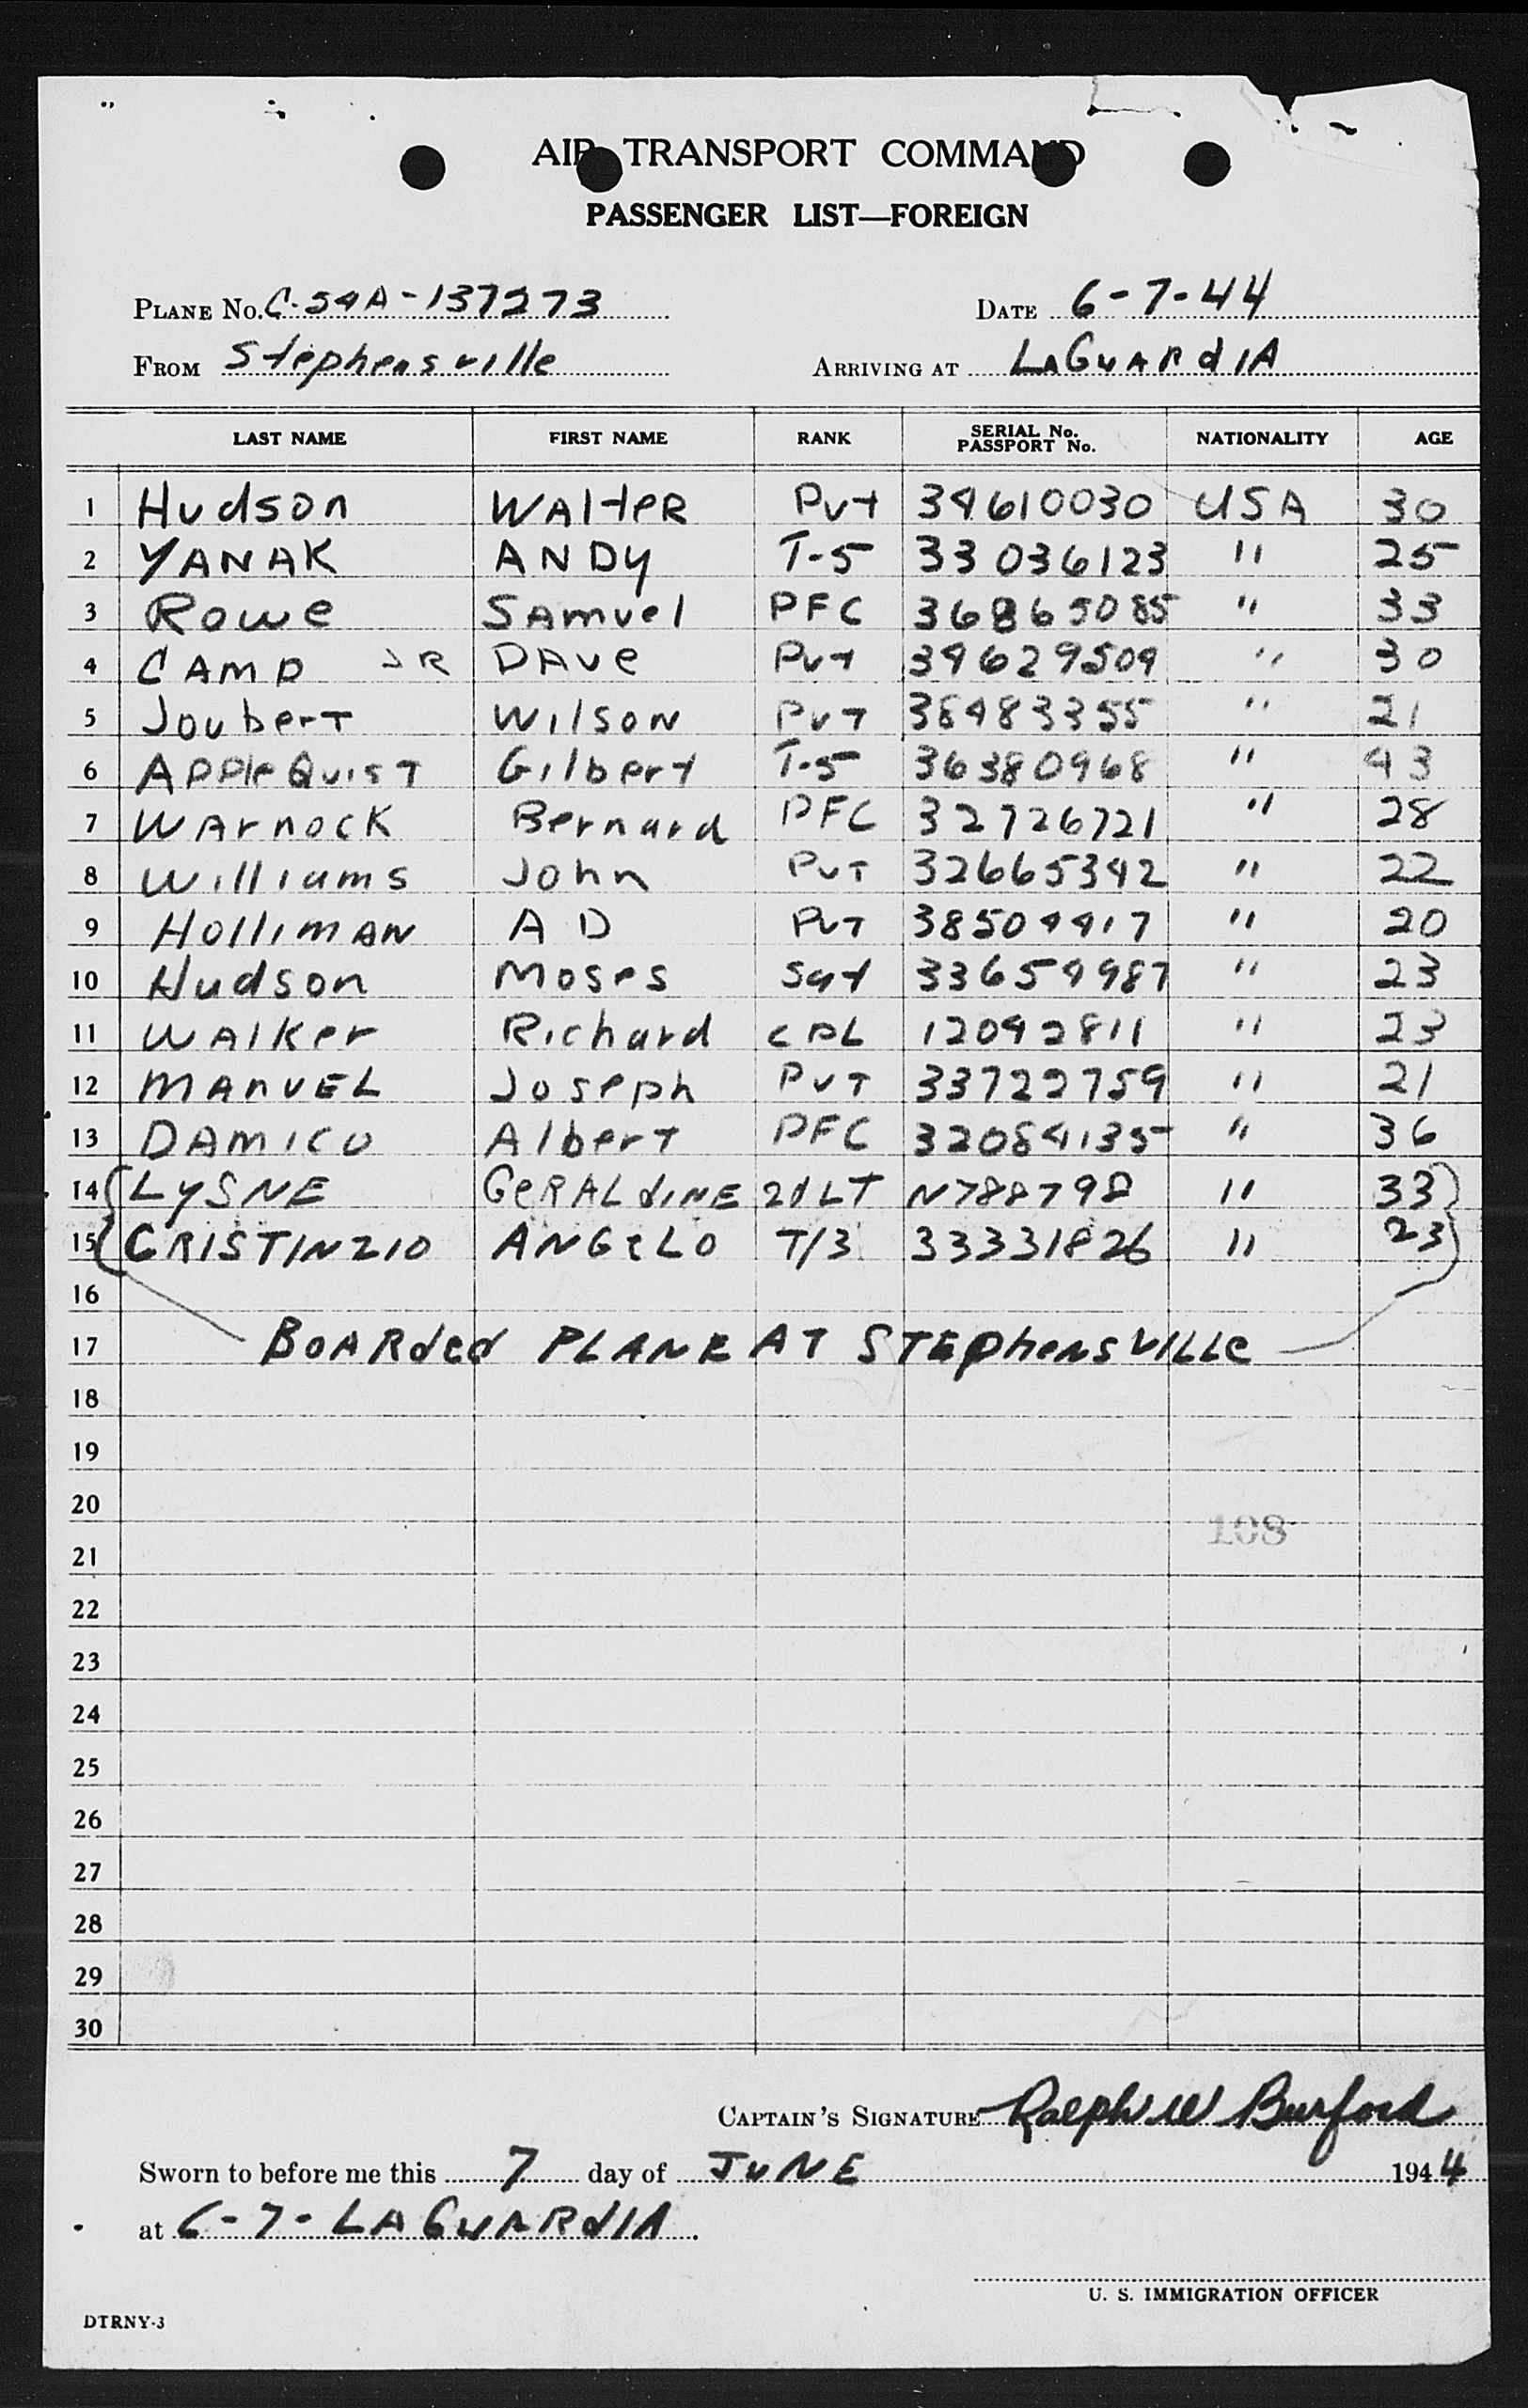 AIR TRANSPORT COMMAND
PASSENGER LIST—FOREIGN
PLANE No. C-54A-137273 DATE 6-7-44
FROM Stephensville ARRIVING AT LAGUARdIA
LAST NAME FIRST NAME RANK SERIAL No. PASSPORT No. NATIONALITY AGE
1 Hudson WAlteR Pvt 34610030 USA 30
2 YANAK ANDy T-5 33036123 " 25
3 Rowe SAmuel PFC 36865085 " 33
4 CAMP JR DAve Pvt 34629504 " 30
5 JouberT WilsoN PvT 38483355 " 21
6 AppleQuisT Gilbert T-5 36380468 " 43
7 WArnocK Bernard PFC 32726721 " 28
8 Williams John PvT 32665342 " 22
9 HollimAN A D PvT 38504417 " 20
10 Hudson Moses Sgt 33654987 " 23
11 WAlker Richard CPL 12042811 " 23
12 MAnUEL Joseph PvT 33722759 " 21
13 DAmico AlberT PFC 32084135 " 36
14 LySNE GeRALdiNE 2d LT N788798 " 33
15 CRISTINZIO ANGeLO T/3 33331826 " 23
16
17 BOARded PLANE AT STEphensVILLe
18
19
20
108
21
22
23
24
25
26
27
28
29
30
CAPTAIN'S SIGNATURE Ralph W Burford
Sworn to before me this 7 day of JUNE 1944
at 6-7-LAGUARdIA.
U. S. IMMIGRATION OFFICER
DTRNY-3